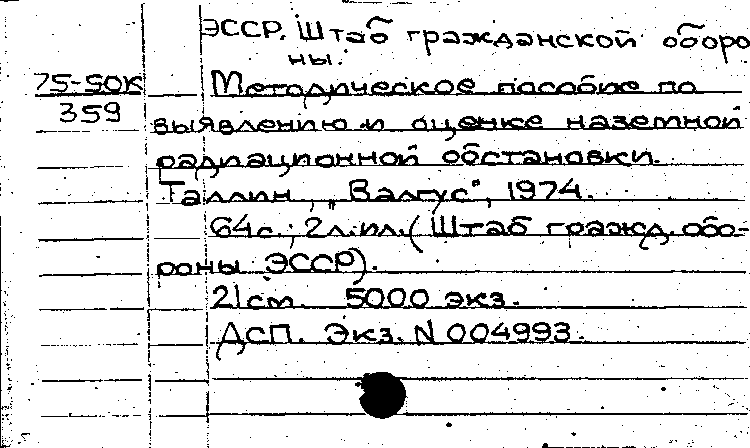 ЭССР. Штаб гражданской оборо
ны.
75-50к Методическое пособие по
359 выявлению и оценке наземной
радиационной обстановки.
Таллин, „Валгус", 1974.
64с.; 2л.ил. (Штаб гражд. обо-
роны ЭССР).
21 см. 5000 экз.
ДСП. Экз. N 004993.